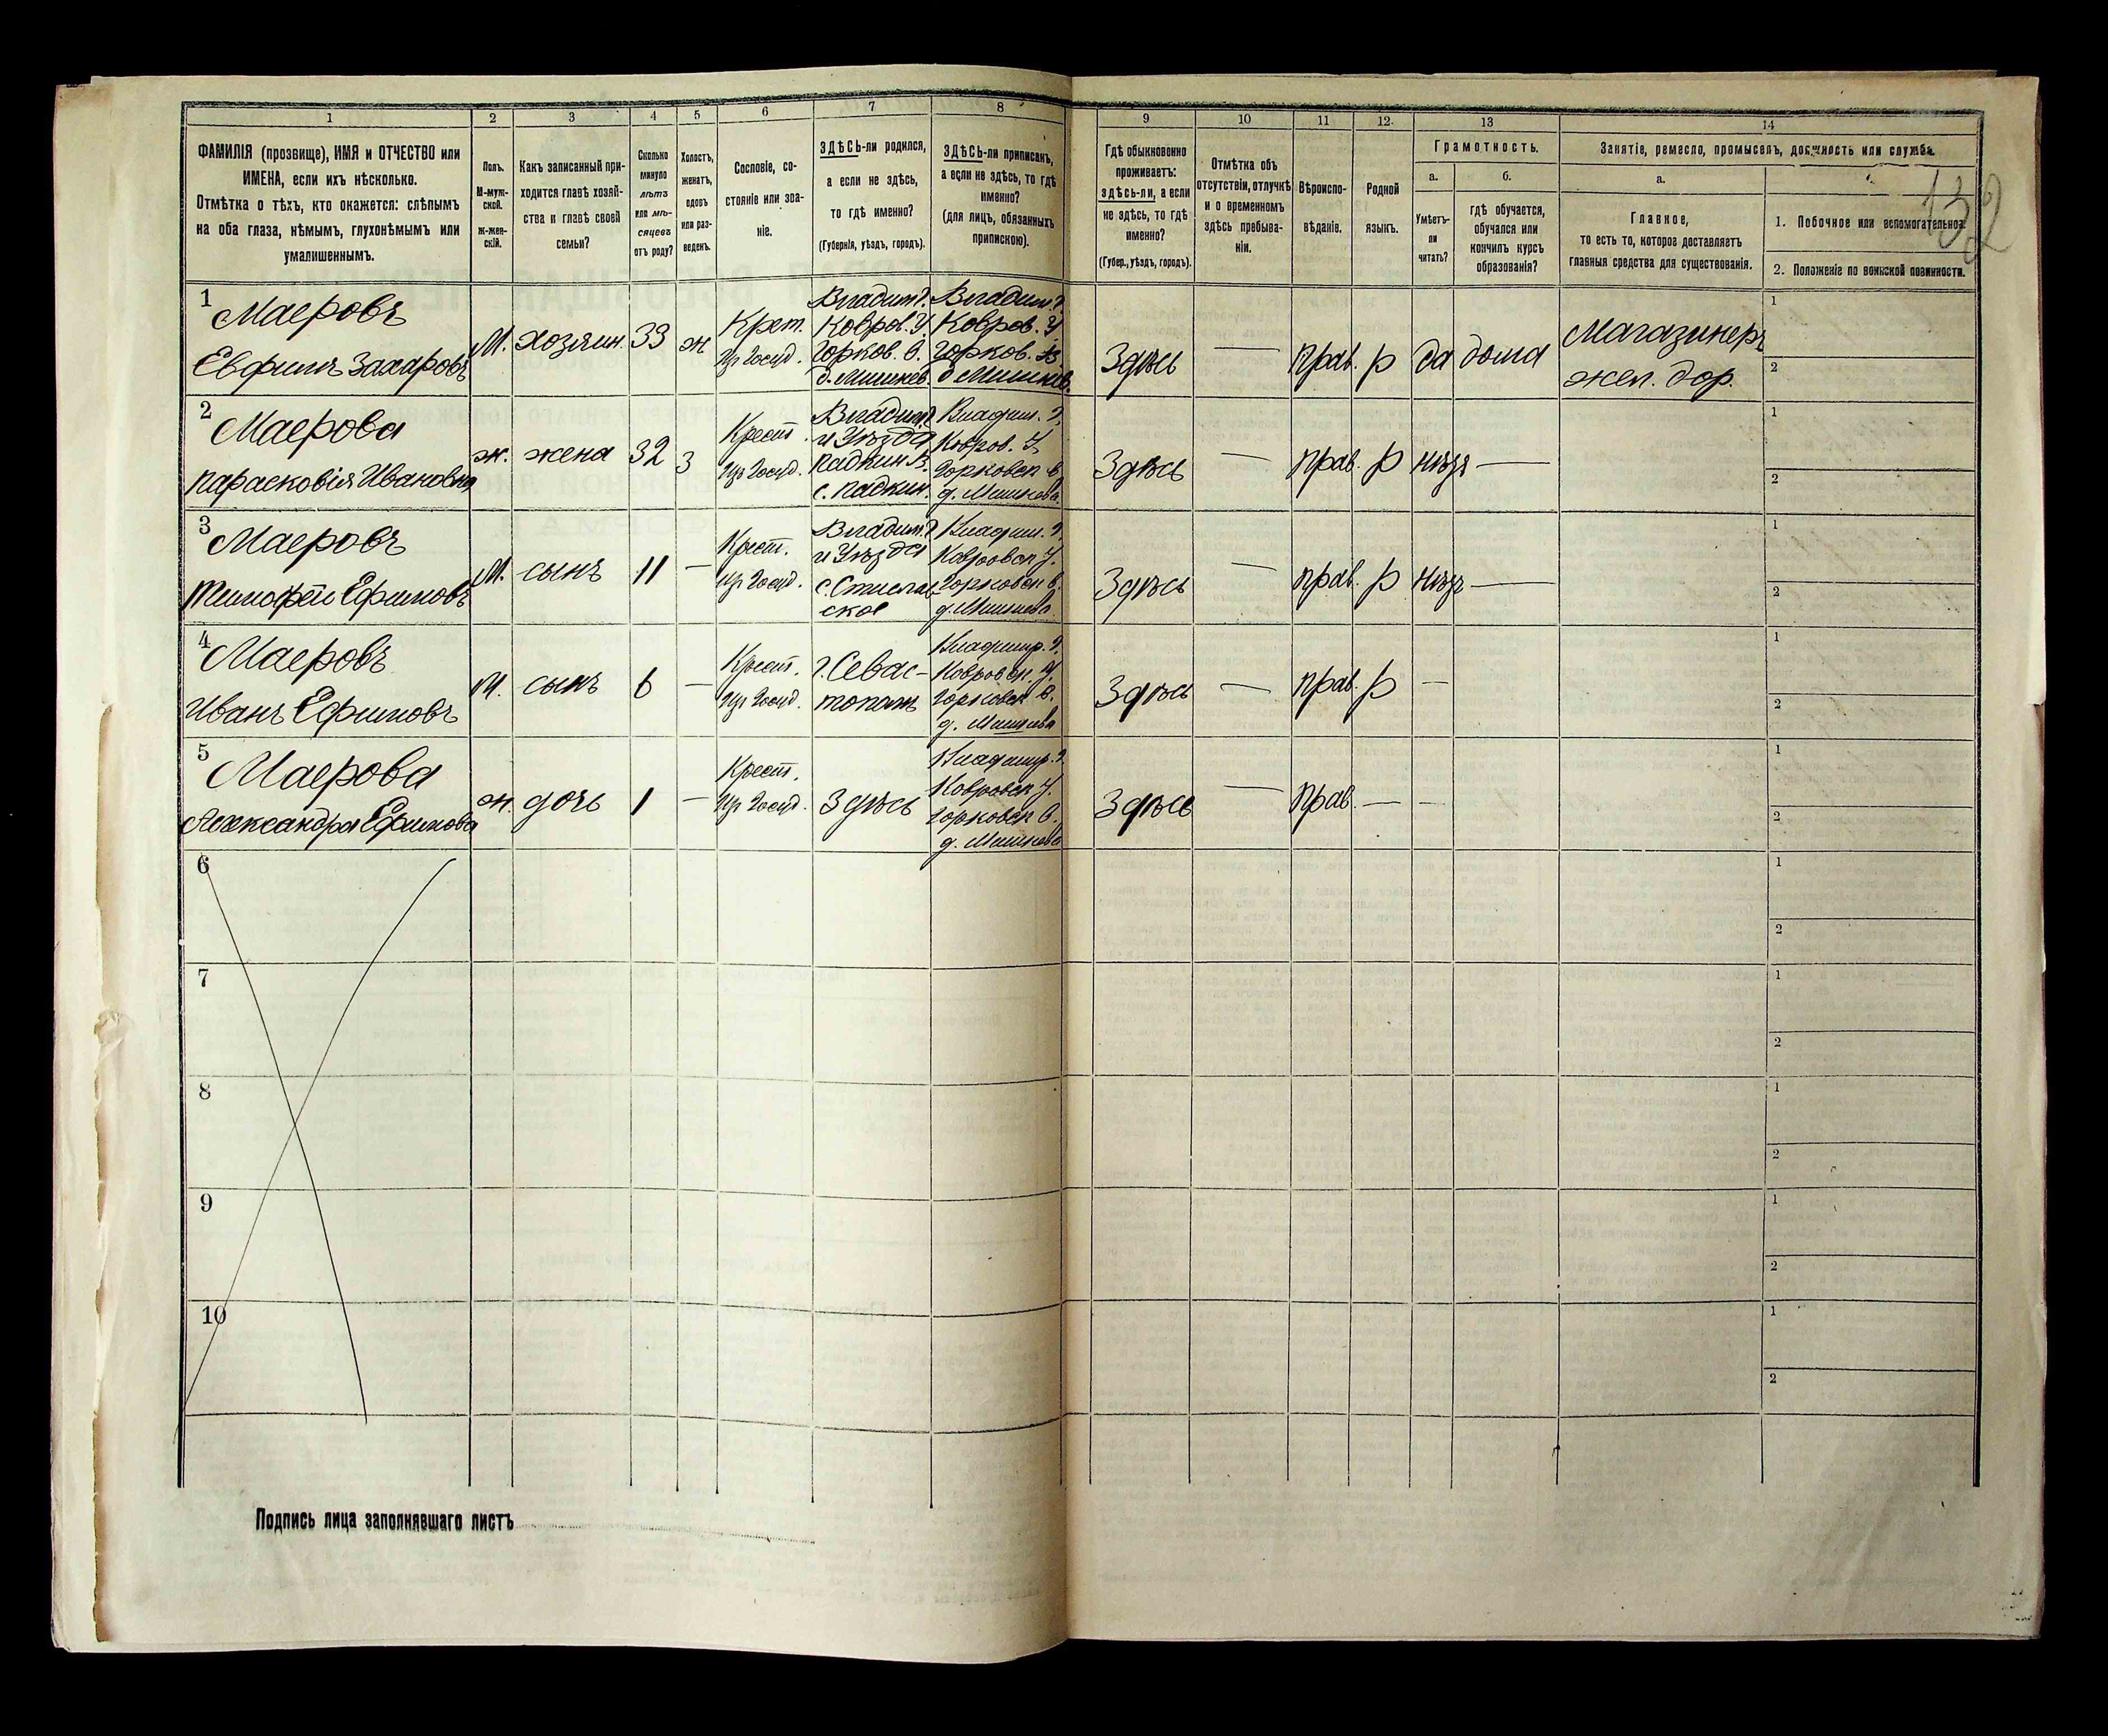 1
2
3
4
5
6
7
8
9
10
11
12
13
14
ФАМИЛІЯ (прозвище), ИМЯ и ОТЧЕСТВО или
ИМЕНА, если ихъ нѣсколько.
Отмѣтка о тѣхъ, кто окажется: слѣпымъ
на оба глаза, нѣмымъ, глухонѣмымъ или
умалишеннымъ.
Полъ.
М-муж-
ской.
Ж-жен-
скій.
Какъ записанный при-
ходится главѣ хозяй-
ства и главѣ своей
семьи?
Сколько
минуло
лѣтъ
или мѣ-
сяцевъ
отъ роду?
Холостъ,
женатъ,
вдовъ
или раз-
веденъ.
Сословіе, со-
стояніе или зва-
ніе.
ЗДѢСЬ-ли родился,
а если не здѣсь,
то гдѣ именно?
(Губернія, уѣздъ, городъ).
ЗДѢСЬ-ли приписанъ,
а если не здѣсь, то гдѣ
именно?
(для лицъ, обязанныхъ
припискою).
Гдѣ обыкновенно
проживаетъ:
здѣсь-ли, а если
не здѣсь, то гдѣ
именно?
(Губер., уѣздъ, городъ).
Отмѣтка объ
отсутствіи, отлучкѣ
и о временномъ
здѣсь пребыва-
ніи.
Вѣроиспо-
вѣданіе.
Родной
языкъ.
Грамотность.
а.
Умѣетъ-
ли
читать?
б.
гдѣ обучается,
обучался или
кончилъ курсъ
образованія?
Занятіе, ремесло, промыселъ, должность или служба.
а.
Главное,
то есть то, которое доставляетъ
главныя средства для существованія.
1. Побочное или вспомогательное.
2. Положеніе по воинской повинности.
132
1
Маеровъ
Евфимъ Захаровъ
М.
хозяин.
33
ж
Крет.
Из Госуд.
Владим. г.
Ковров. У.
Горков. В.
д. Мишнев.
Владим. г.
Ковров. У
Горков. В
д Мишнев.
Здѣсь
—
прав.
р
да
дома
Магазинеръ
жел. дор.
1
2
2
Маерова
Парасковія Ивановна
ж.
жена
32
З
Крест.
Из Госуд.
Владим. г
и Уѣзда
Падкин В.
с. Падкин.
Владим. г.
Ковров. У.
Горковск в.
д. Мишнева
Здѣсь
—
прав.
р
нѣтъ
—
1
2
3
Маеровъ
Тимофей Ефимовъ
М.
сынъ
11
—
Крест.
Из Госуд.
Владим. г
и Уѣзда
ское
Владим. г.
Ковровск У.
Горковск в.
д. Мишнева
Здѣсь
—
прав.
р
нѣтъ
—
1
2
4
Маеровъ
Иванъ Ефимовъ
М.
сынъ
6
—
Крест.
Из Госуд.
г. Севас-
тополь
Владимир. г.
Ковровск. У.
Горковск В.
д. Мишнева
Здѣсь
—
прав.
р
—
1
2
5
Маерова
Александра Ефимова
ж.
дочь
1
—
Крест.
Из Госуд.
Здѣсь
Владимир. г.
Ковровск У.
Горковск В.
д. Мишнева
Здѣсь
—
прав.
—
—
1
2
6
1
2
7
1
2
8
1
2
9
1
2
10
1
2
Подпись лица заполнявшаго листъ